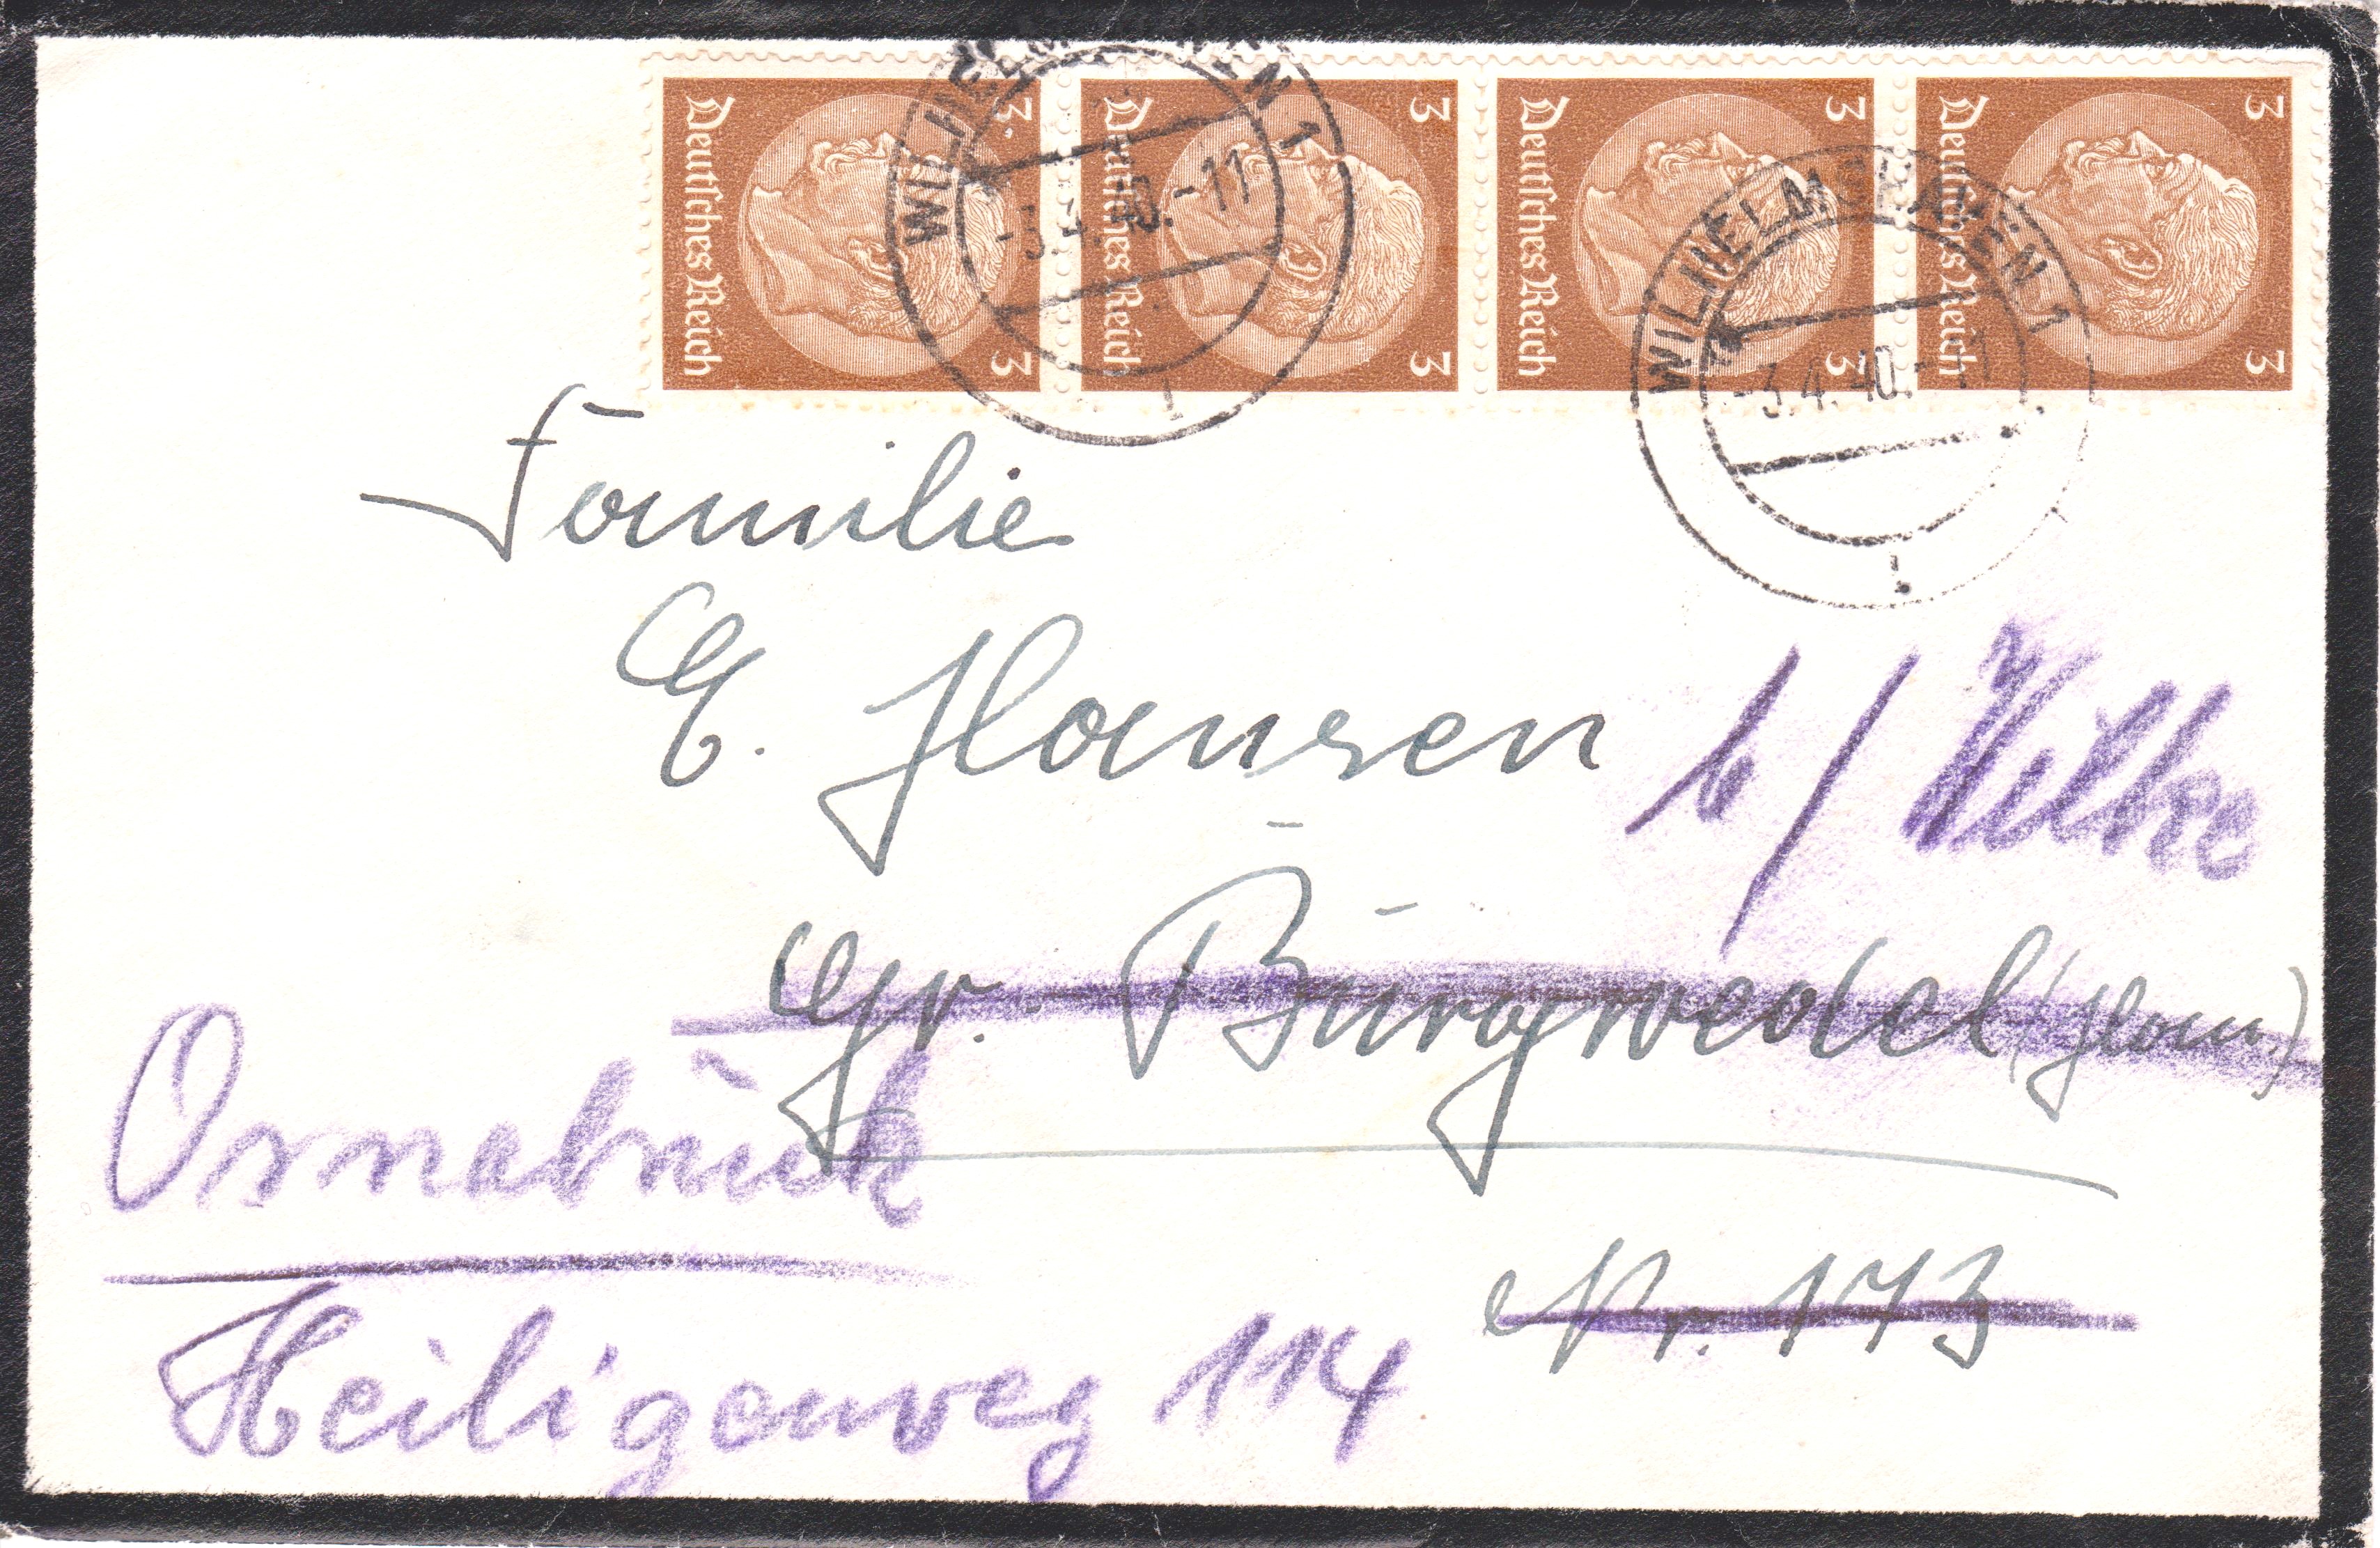 3 Deutsches Reich 3
3 Deutsches Reich 3
3 Deutsches Reich 3
3 Deutsches Reich 3
WILHELMSHAVEN 1
-3.4.40.-11
WILHELMSHAVEN 1
-3.4.40.-11
Familie
E. Hansen
b/ Wilke
Gr. Burgwedel (Hann.)
Osnabrück
Nr. 173
Heiligenweg 114